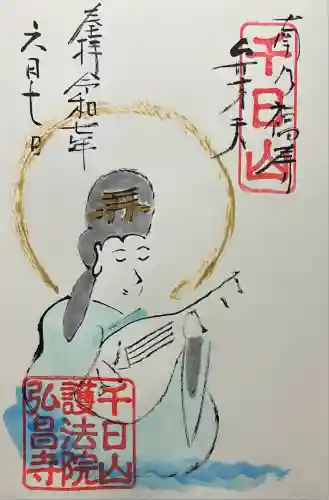 千日山
弁才天
奉拝 令和七年
六月十七日
千日山
護法院
弘昌寺